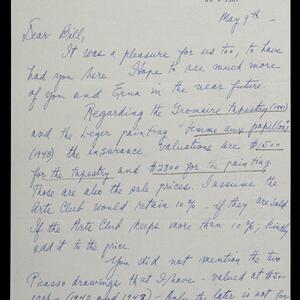 May 9th -
Dear Bill,
It was a pleasure for us too, to have
had you here. Hope to see much more
of you and Erna in the near future.
Regarding the Gromaire tapestry (1941)
and the Leger painting "femme aux papillons"
(1943) the insurance valuations are $1500
for the tapestry and $2800 for the painting.
Those are also the sale prices. I assume the
Arts Club would retain 10% - if they are sold.
If the Arts Club keeps more than 10%, kindly
add it to the price.
You did not mention the two
Picasso drawings that I have - valued at $500
(1942 and 1948) - Only the later is not for